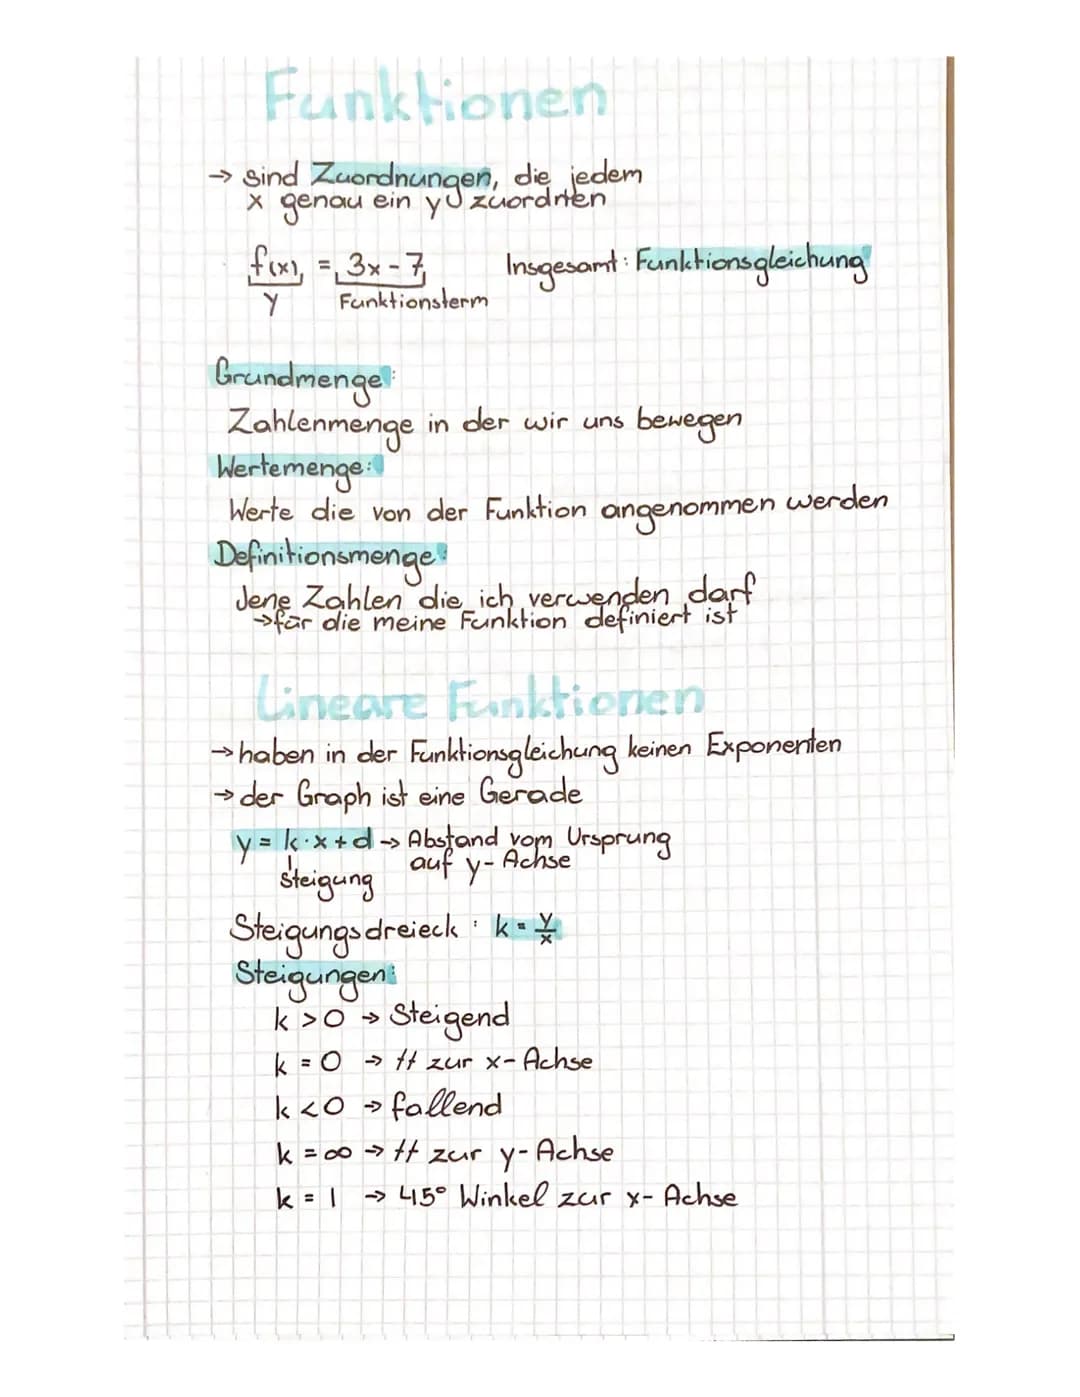 Funktionen
→ sind Zuordnungen, die jedem
x genau ein y zuordnen
f(x) = 3x - 7 Insgesamt: Funktionsgleichung
y Funktionsterm
Grundmenge:
Zahlenmenge in der wir uns bewegen
Wertemenge:
Werte die von der Funktion angenommen werden
Definitionsmenge:
Jene Zahlen die ich verwenden darf
→ für die meine Funktion definiert ist
Lineare Funktionen
→ haben in der Funktionsgleichung keinen Exponenten
→ der Graph ist eine Gerade
y = k·x + d → Abstand vom Ursprung
auf y-Achse
Steigung
Steigungsdreieck: k = y/x
Steigungen:
k > 0 → Steigend
k = 0 → // zur x-Achse
k < 0 → fallend
k = ∞ → // zur y-Achse
k = 1 → 45° Winkel zur x-Achse